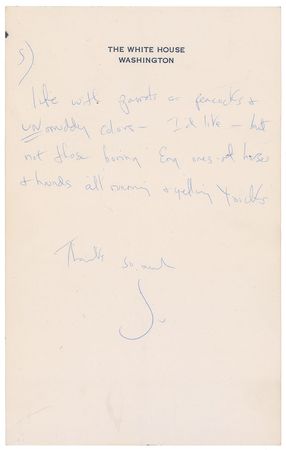 THE WHITE HOUSE
WASHINGTON
5)
like with parrots or peacocks &
unmuddy colors – I'd like – but
not those boring Eng ones of horses
& hounds all running & yelling
Thanks so much
J.